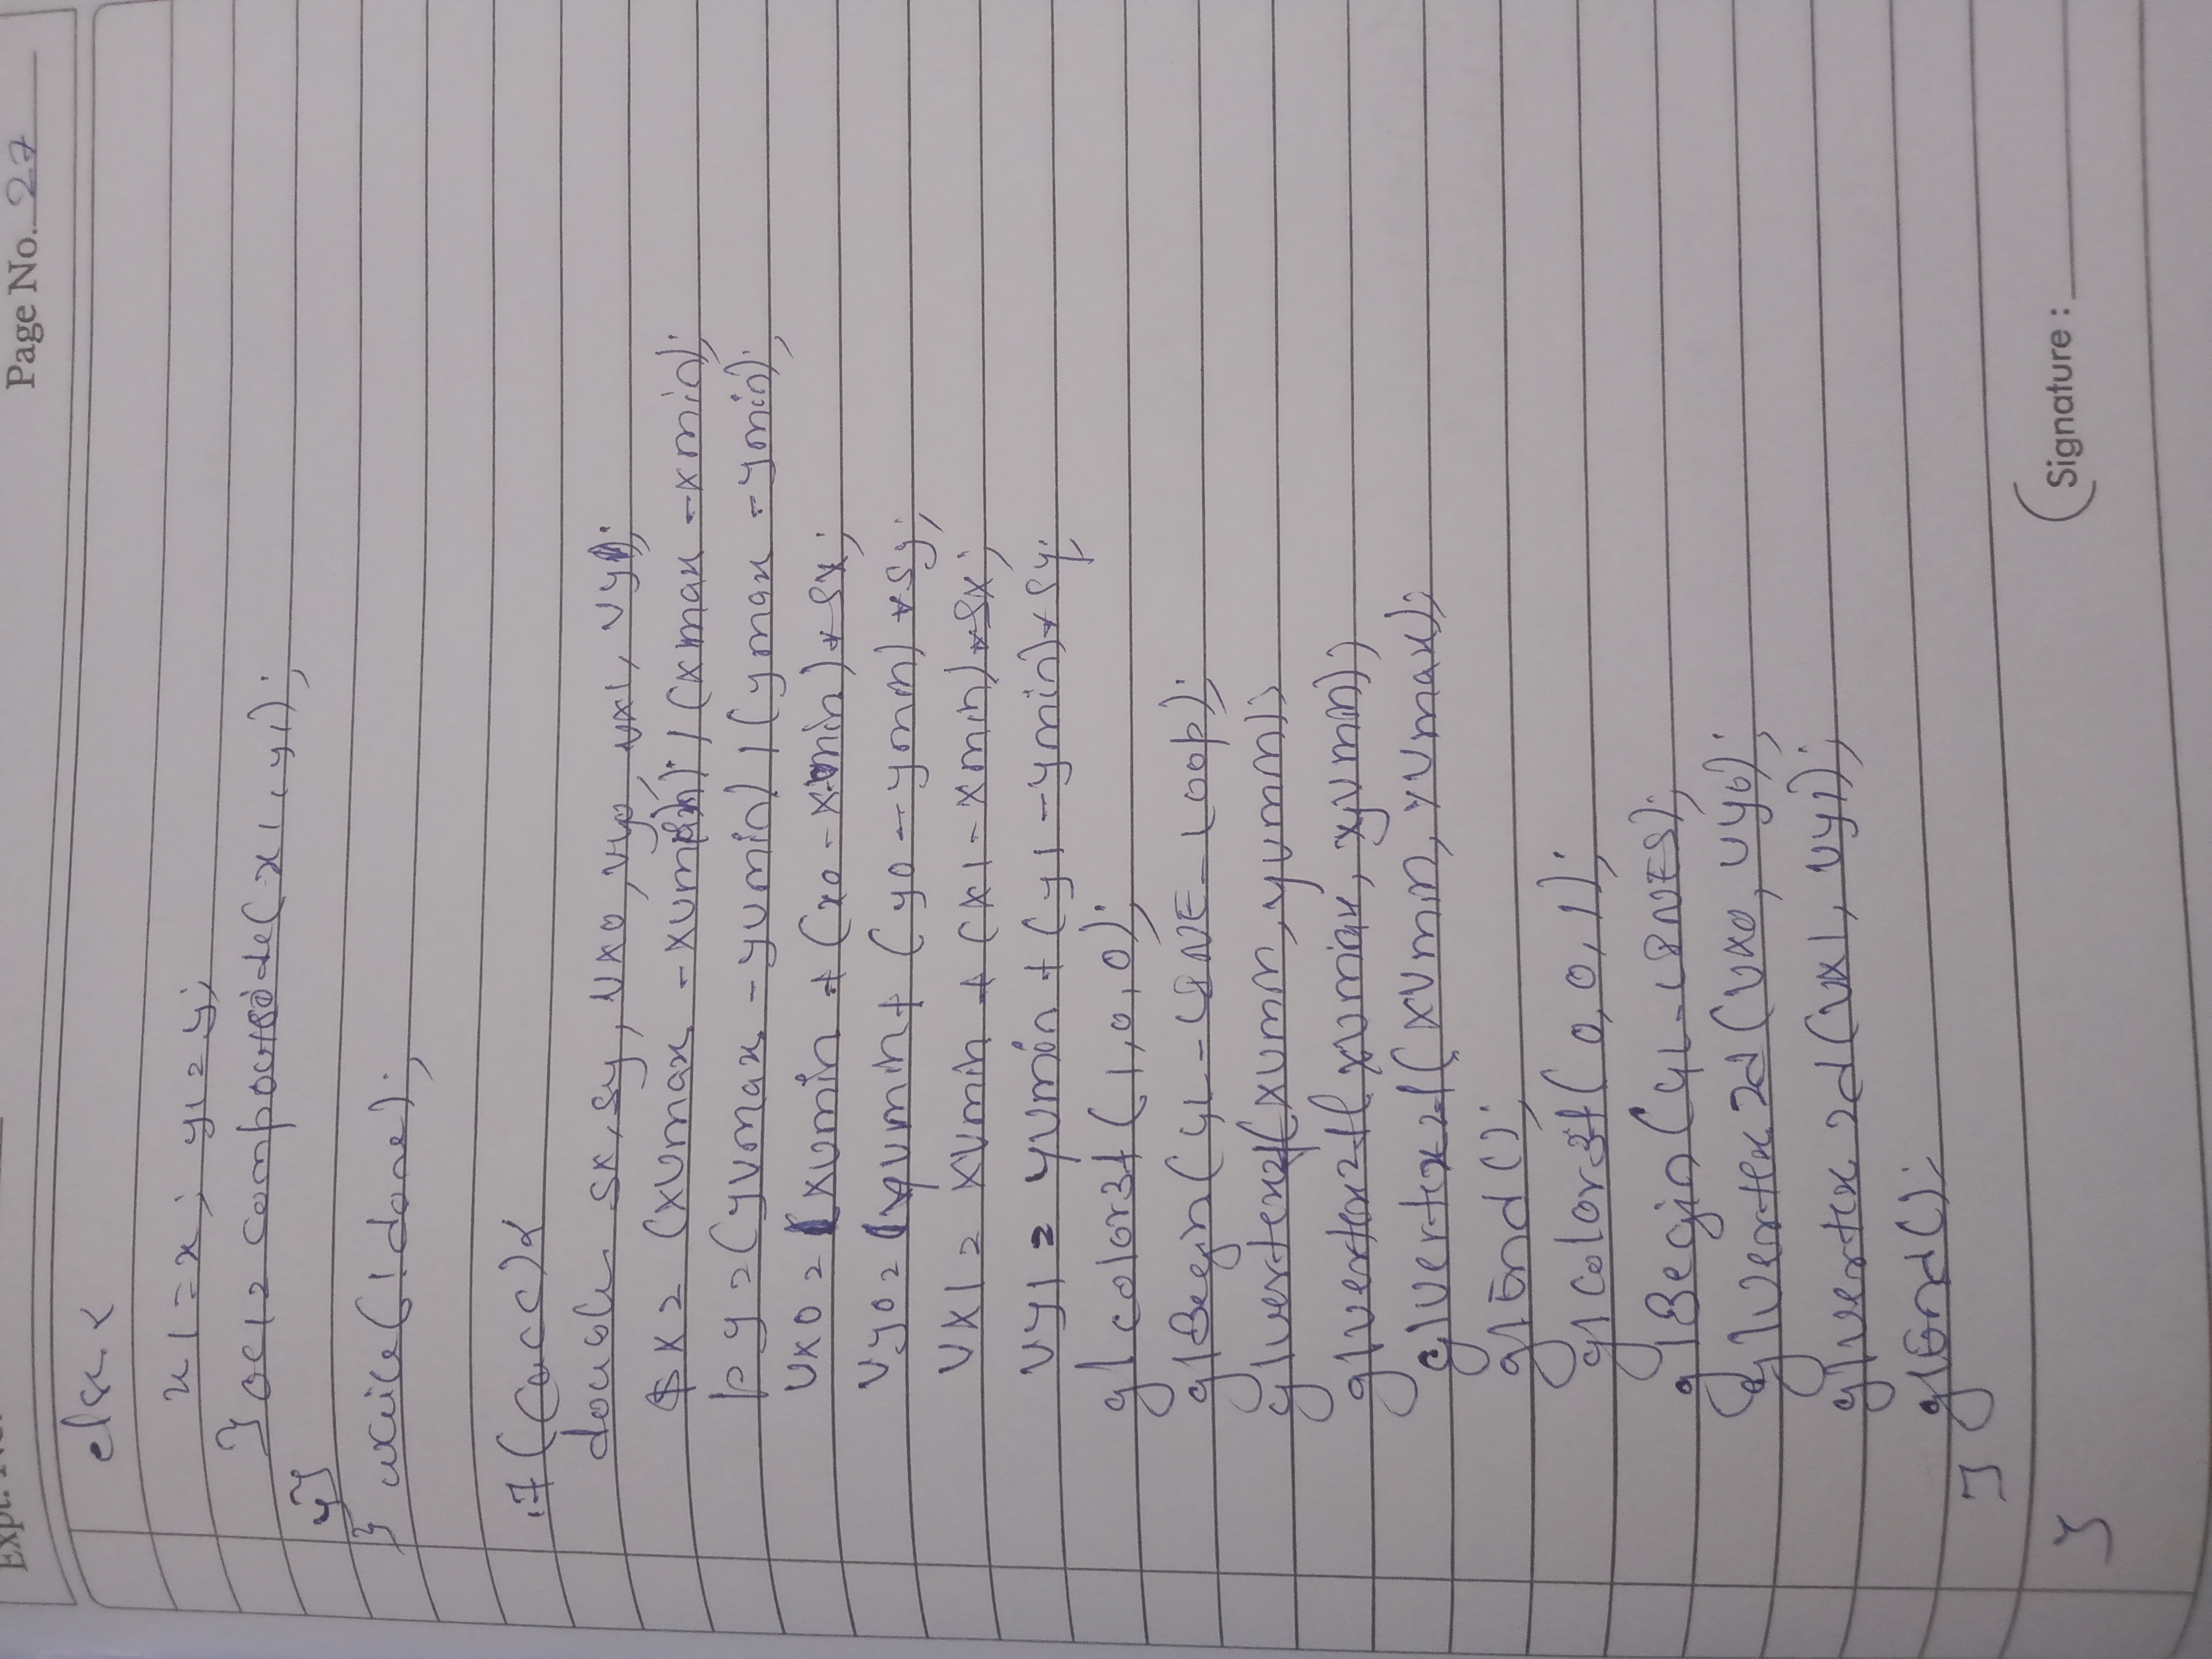 Expt. No.
Page No. 27
else {
x1 = x; y1 = y;
} oc1 = compoutcode(x1, y1);
}}
} while(!done);
if(acc){
double sx, sy, vx0, vy0, vx1, vy1;
sx = (xvmax - xvmin) / (xmax - xmin);
py = (yvmax - yvmin) / (ymax - ymin);
vx0 = xvmin + (x0 - xmin) * sx;
vy0 = yvmin + (y0 - ymin) * sy;
vx1 = xvmin + (x1 - xmin) * sx;
vy1 = yvmin + (y1 - ymin) * sy;
glcolor3f(1, 0, 0);
glBegin(GL-LINE-LOOP);
glvertex2f(xvmin, yvmin);
glvertex2f(xvmax, xyvmin);
glvertex2f(xvmin, yvmax);
glEnd();
glcolor3f(0, 0, 1);
glBegin(GL-LINES);
glvertex2d(vx0, vy0);
glvertex2d(vx1, vy1);
glEnd();
}
}
(Signature :